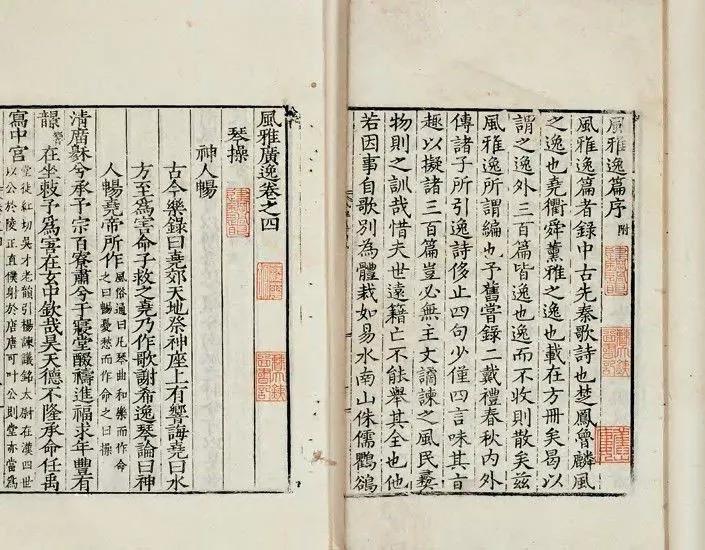 風雅逸篇序附
風雅逸篇者錄中古先秦歌詩也楚鳳魯麟風
之逸也堯衢舜薰雅之逸也載在方冊矣曷以
謂之逸外三百篇皆逸也逸而不收則散矣茲
風雅逸所謂編也予舊嘗錄二戴禮春秋內外
傳諸子所引逸詩侈止四句少僅四言味其言
趣以擬諸三百篇豈必無主文譎諫之風民彝
物則之訓哉惜夫世遠籍亡不能舉其全也他
若因事自歌別為體栽如易水南山侏儒鸜鵒
風雅廣逸卷之四
琴操
神人暢
古今樂錄曰堯郊天地祭神座上有響誨堯曰水
方至爲害命子救之堯乃作歌謝希逸琴論曰神
人暢堯帝所作風俗通曰凡琴曲和樂而作命
之曰暢憂愁而作命之曰操
清廟穆兮承予宗百寮肅兮于寢堂醊禱進福求年豐有
響在坐敕予爲害在玄中欽哉昊天德不隆承命任禹
寫中宮堂徒紅切吳才老韻引楊諫議銘太尉在漢四世
以公於陵正直僕射於唐唐可叶公則堂亦當爲